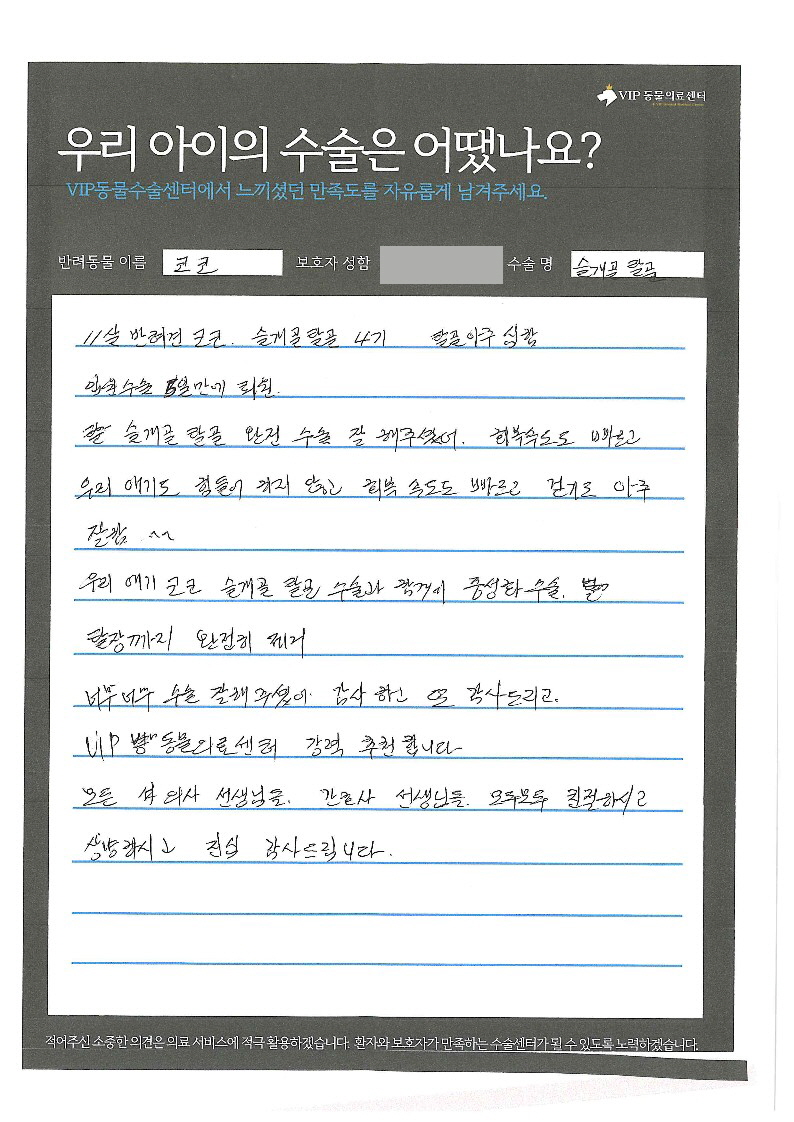 VIP 동물의료센터
우리 아이의 수술은 어땠나요?
VIP동물수술센터에서 느끼셨던 만족도를 자유롭게 남겨주세요.
반려동물 이름 코코 보호자 성함 수술 명 슬개골 탈골
11살 반려견 코코. 슬개골탈골 4기 탈골아주 심함
수술 5일만에 퇴원.
슬개골 탈골 완전 수술 잘 해주셨어. 회복속도도 빠르고
우리 애기도 힘들어 하지 않고 회복 속도도 빠르고 걷기도 아주
잘함 ^^
우리 애기 코코 슬개골 탈골 수술과 함께 중성화 수술.
탈장까지 완전히 제거
너무너무 수술 잘해 주셨어 감사 하고 또 감사드리고.
VIP 동물의료센터 강력 추천 합니다
모든 수의사 선생님들. 간호사 선생님들. 모두모두 친절하시고
진심 감사드립니다.
적어주신 소중한 의견은 의료 서비스에 적극 활용하겠습니다. 환자와 보호자가 만족하는 수술센터가 될 수 있도록 노력하겠습니다.